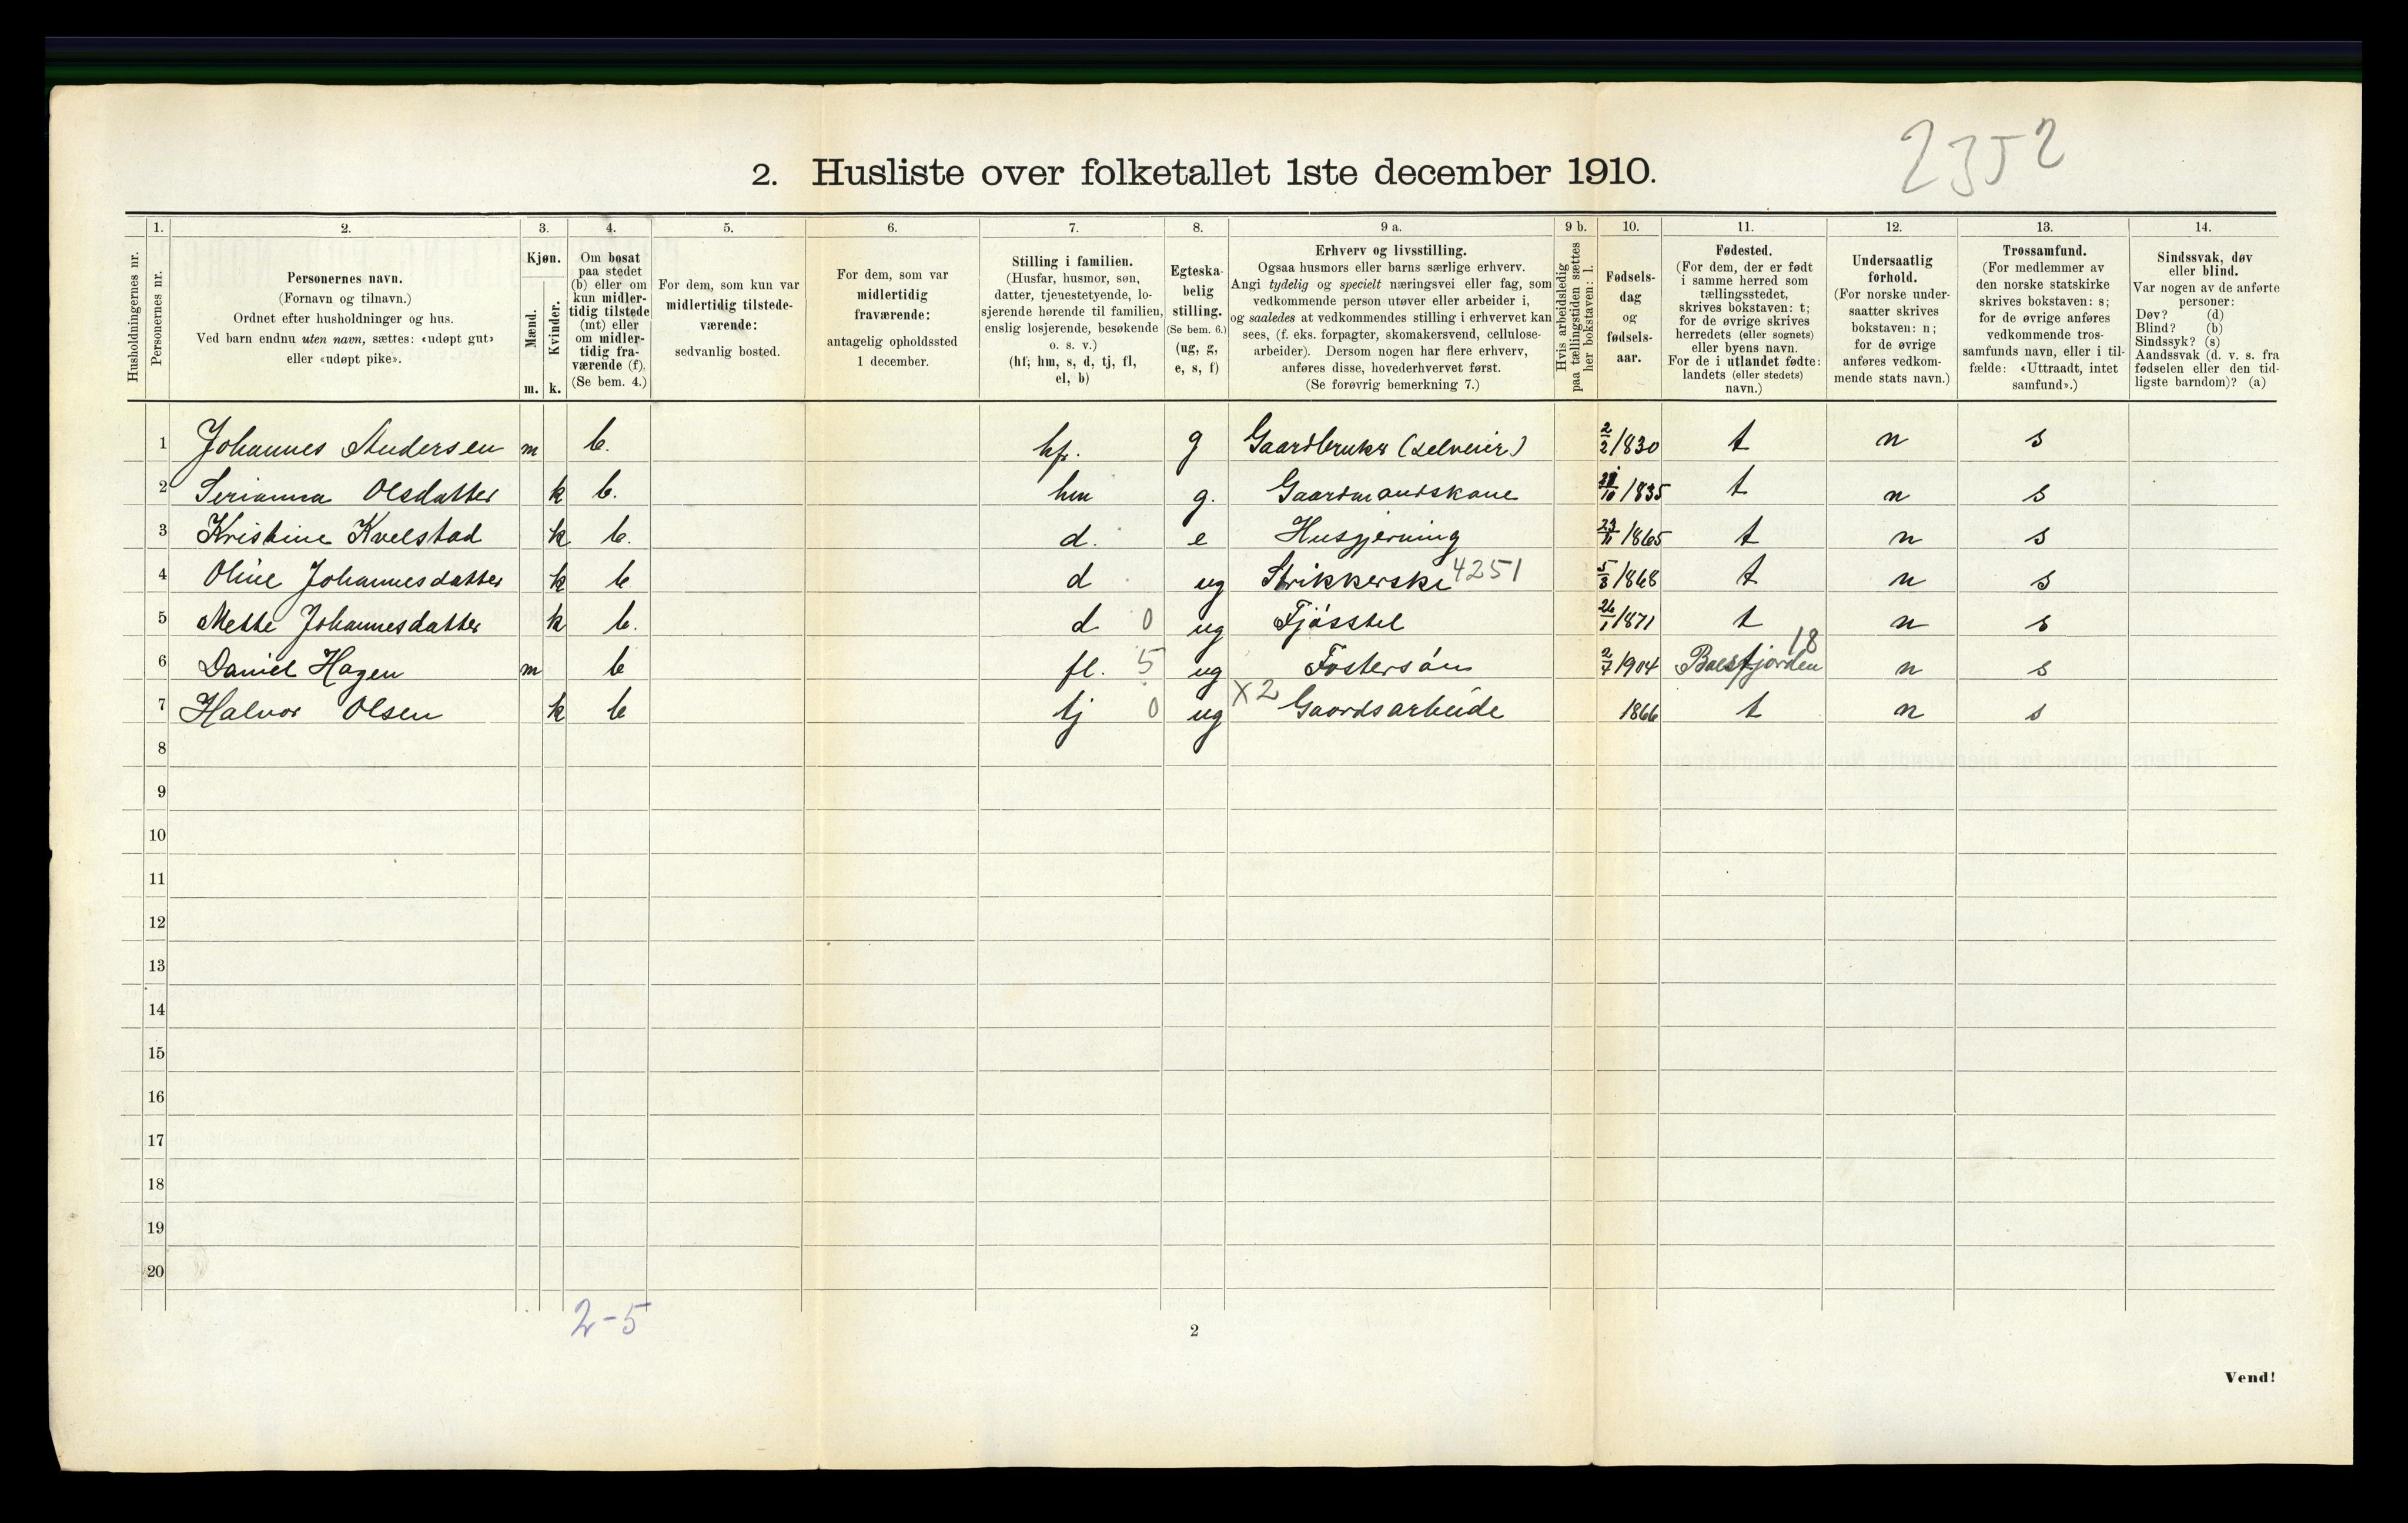 2352
2. Husliste over folketallet 1ste december 1910.
Husholdningernes nr.
1.
Personernes nr.
2.
Personernes navn.
(Fornavn og tilnavn.)
Ordnet efter husholdninger og hus.
Ved barn endnu uten navn, sættes: «udøpt gut»
eller «udøpt pike».
3.
Kjøn.
Mænd.
Kvinder.
m. k.
4.
Om bosat
paa stedet
(b) eller om
kun midler-
tidig tilstede
(mt) eller
om midler-
tidig fra-
værende (f).
(Se bem. 4.)
5.
For dem, som kun var
midlertidig tilstede-
værende:
sedvanlig bosted.
6.
For dem, som var
midlertidig
fraværende:
antagelig opholdssted
1 december.
7.
Stilling i familien.
(Husfar, husmor, søn,
datter, tjenestetyende, lo-
sjerende hørende til familien,
enslig losjerende, besøkende
o. s. v.)
(hf, hm, s, d, tj, fl,
el, b)
8.
Egteska-
belig
stilling.
(Se bem. 6.)
(ug, g,
e, s, f)
9 a.
Erhverv og livsstilling.
Ogsaa husmors eller barns særlige erhverv.
Angi tydelig og specielt næringsvei eller fag, som
vedkommende person utøver eller arbeider i,
og saaledes at vedkommendes stilling i erhvervet kan
sees, (f. eks. forpagter, skomakersvend, cellulose-
arbeider). Dersom nogen har flere erhverv,
anføres disse, hovederhvervet først.
(Se forøvrig bemerkning 7.)
9 b.
Hvis arbeidsledig
paa tællingstiden sættes
her bokstaven: l.
10.
Fødsels-
dag
og
fødsels-
aar.
11.
Fødested.
(For dem, der er født
i samme herred som
tællingsstedet,
skrives bokstaven: t;
for de øvrige skrives
herredets (eller sognets)
eller byens navn.
For de i utlandet fødte:
landets (eller stedets)
navn.)
12.
Undersaatlig
forhold.
(For norske under-
saatter skrives
bokstaven: n;
for de øvrige
anføres vedkom-
mende stats navn.)
13.
Trossamfund.
(For medlemmer av
den norske statskirke
skrives bokstaven: s;
for de øvrige anføres
vedkommende tros-
samfunds navn, eller i til-
fælde: «Uttraadt, intet
samfund».)
14.
Sindssvak, døv
eller blind.
Var nogen av de anførte
personer:
Døv? (d)
Blind? (b)
Sindssyk? (s)
Aandssvak (d. v. s. fra
fødselen eller den tid-
ligste barndom)? (a)
1 Johannes Andersen m b. hf. g Gaardbruker (selveier) 2/2 1830 t n s
2 Serianna Olsdatter k b. hm g. Gaardmandskone /10 1835 t n s
3 Kristine Kvelstad k b. d. e Husgjerning 23/11 1865 t n s
4 Oline Johannesdatter k b d ug Strikkerske 4251 5/8 1868 t n s
5 Mette Johannesdatter k b. d 0 ug Fjøsstel 26/1 1871 t n s
6 Daniel Hagen m b fl. 5 ug Fostersøn 2/7 1904 18 n s
7 Halvor Olsen k b tj 0 ug X2 Gaardsarbeide 1866 t n s
8
9
10
11
12
13
14
15
16
17
18
19
20
2-5
2
Vend!